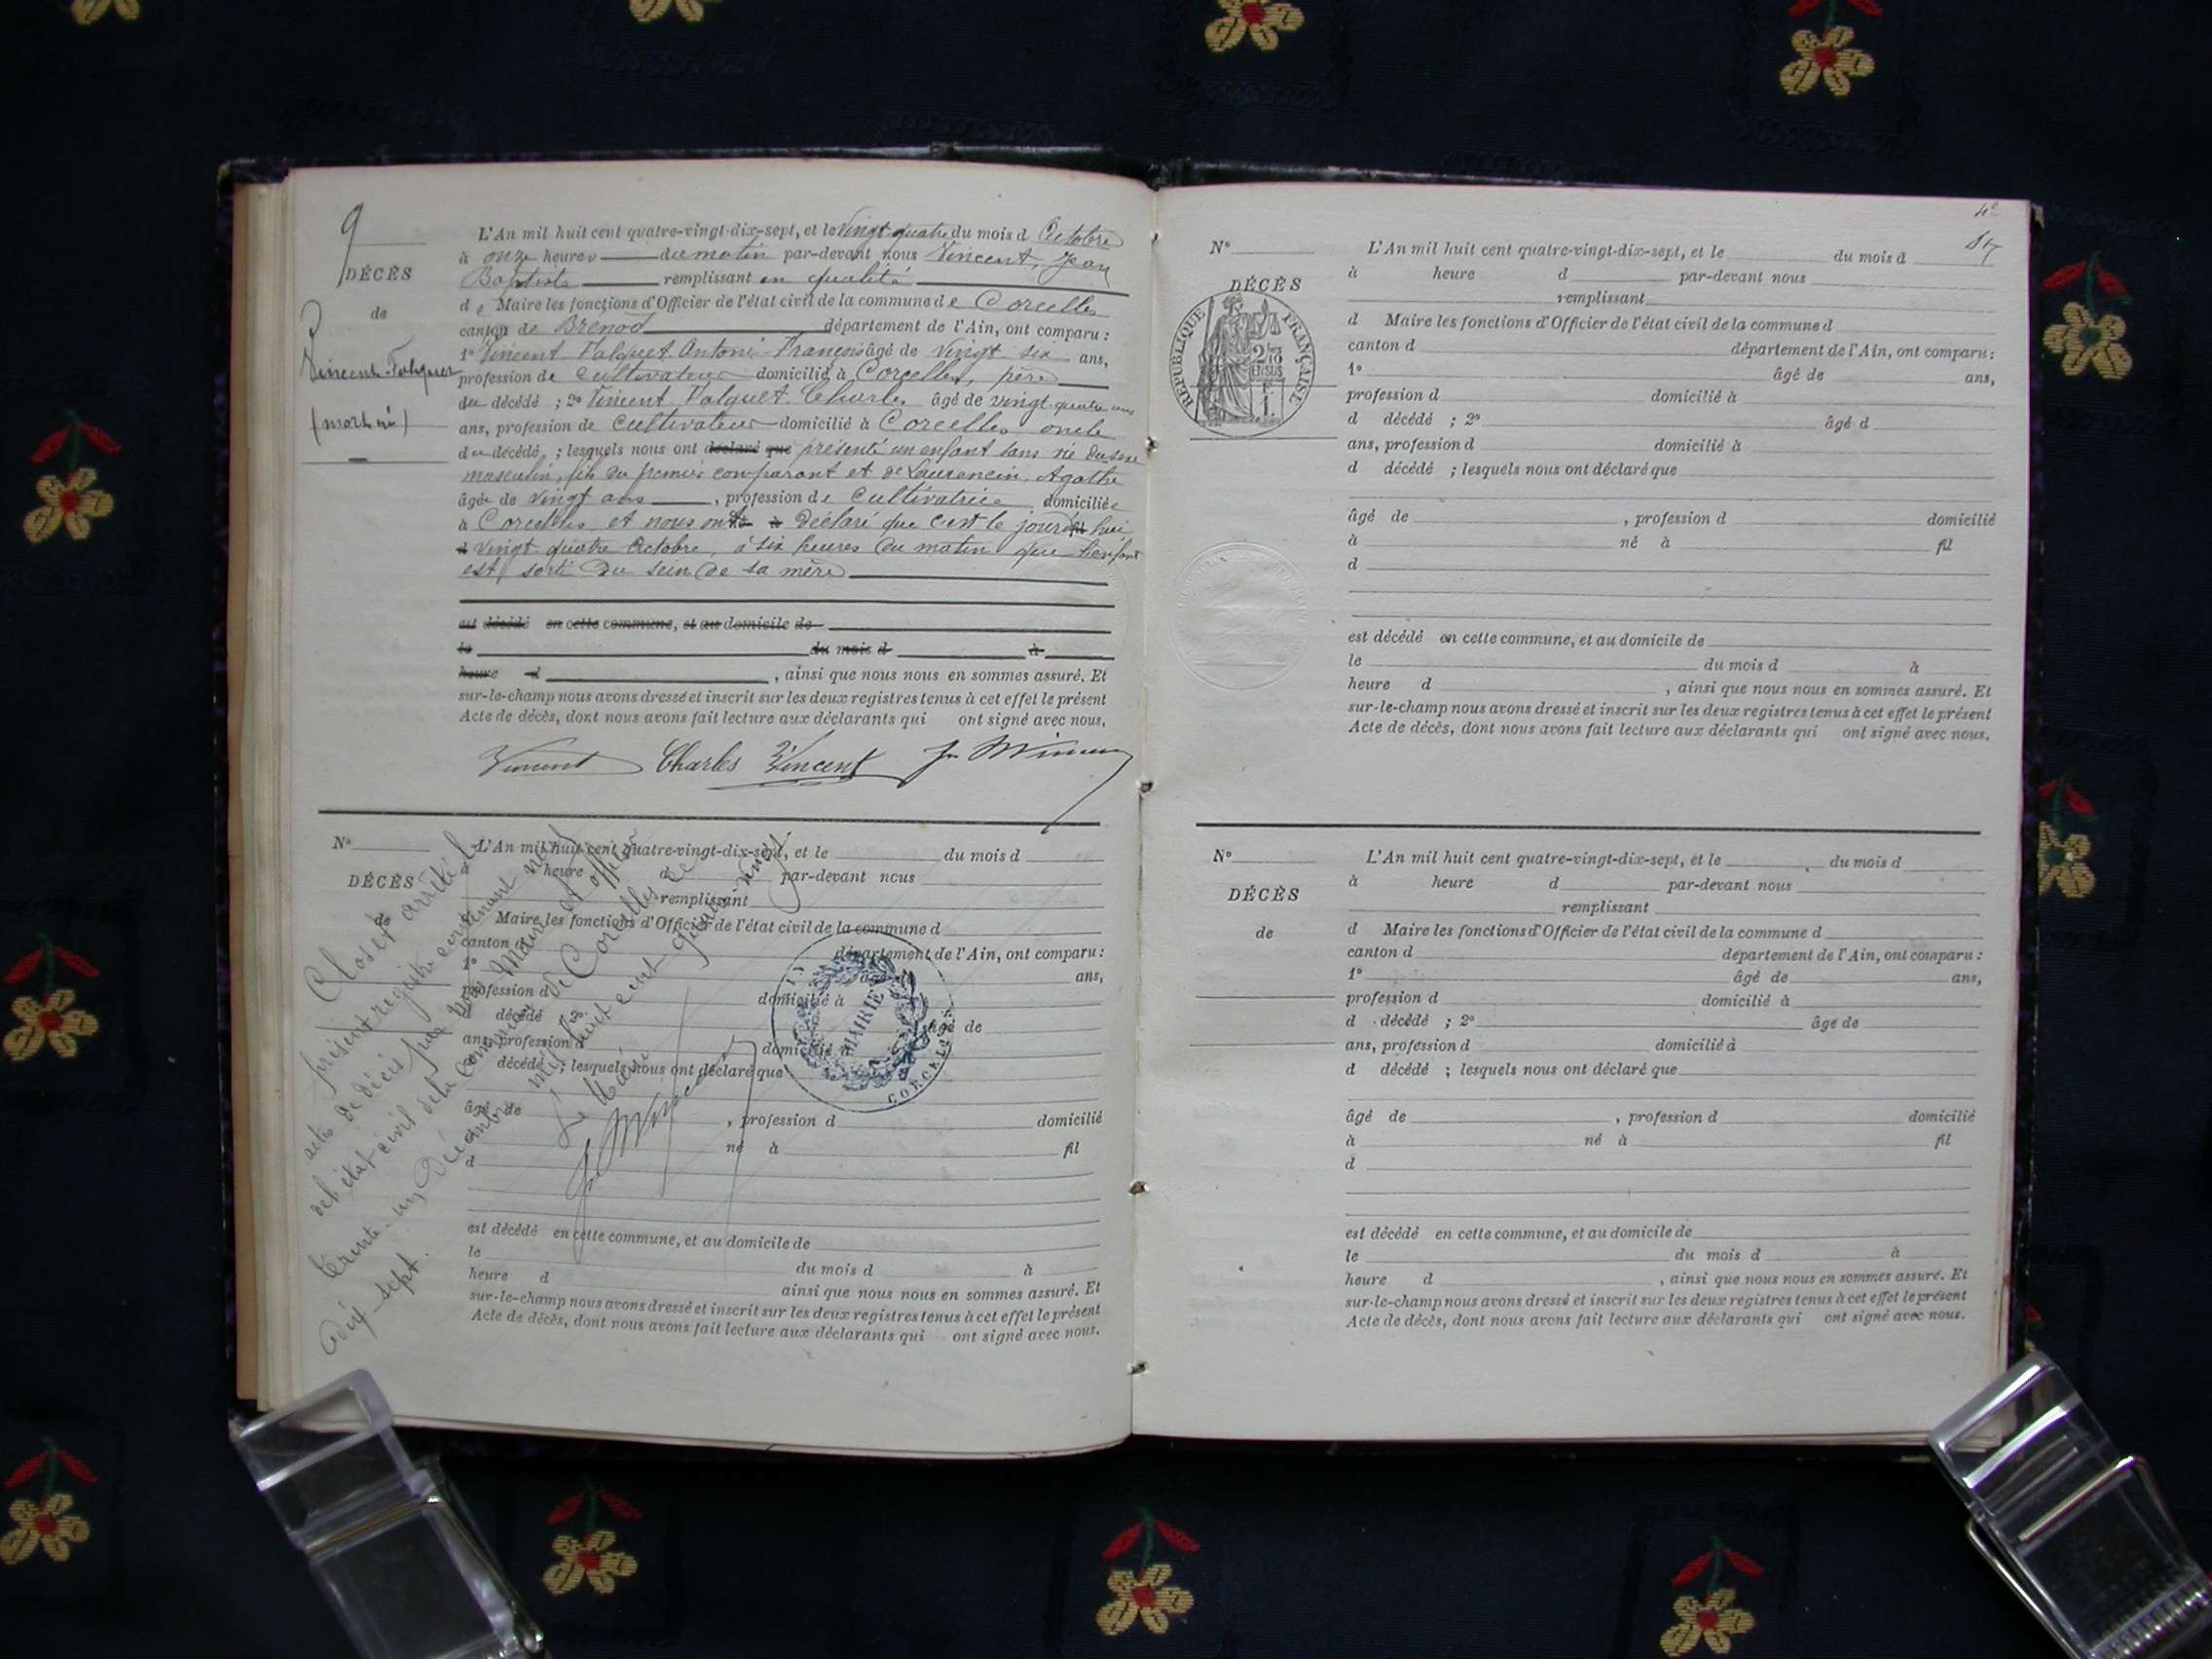 9
DÉCÈS
de
Vincent-Falquet
(mort né)
L'An mil huit cent quatre-vingt-dix-sept, et le Vingt quatre du mois d Octobre
à onze heures du matin par-devant nous Vincent, Jean
Baptiste remplissant en qualité
de Maire les fonctions d'Officier de l'état civil de la commune de Corcelles
canton de Brenod département de l'Ain, ont comparu :
1° Vincent Falquet Antoni-François âgé de Vingt six ans,
profession de Cultivateur domicilié à Corcelles, père
du décédé ; 2° Vincent Falquet Charles âgé de vingt quatre ans
ans, profession de Cultivateur domicilié à Corcelles oncle
du décédé, ; lesquels nous ont déclaré que présenté un enfant sans vie du sexe
masculin, fils du premier comparant et de Laurencin, Agathe
âgée de vingt ans , profession de Cultivatrice domiciliée
à Corcelles et nous ont né à déclaré que c'est le jourd'hui
vingt quatre Octobre, à six heures du matin que l'enfant
est sorti du sein de sa mère
est décédé en cette commune, et au domicile de
le du mois d à
heure d , ainsi que nous nous en sommes assuré. Et
sur-le-champ nous avons dressé et inscrit sur les deux registres tenus à cet effet le présent
Acte de décès, dont nous avons fait lecture aux déclarants qui ont signé avec nous.
Vincent Charles Vincent Jn Vincent
N°
DÉCÈS
de
L'An mil huit cent quatre-vingt-dix-sept, et le du mois d
heure d par-devant nous
remplissant
Maire les fonctions d'Officier de l'état civil de la commune d
canton d département de l'Ain, ont comparu :
1° âgé de ans,
profession d domicilié à
décédé 2° âgé de
ans, profession d domicilié
décédé ; lesquels nous ont déclaré que
âgé de , profession d domicilié
né à fil
d
est décédé en cette commune, et au domicile de
le du mois d à
heure d ainsi que nous nous en sommes assuré. Et
sur-le-champ nous avons dressé et inscrit sur les deux registres tenus à cet effet le présent
Acte de décès, dont nous avons fait lecture aux déclarants qui ont signé avec nous.
Clos et arrêté le
présent registre contenant neuf
actes de décès par nous Maire et officier
de l'état civil de la Commune de Corcelles ce
trente un Décembre mil huit cent quatre vingt
dix sept.
Le Maire
Jn Vincent
MAIRIE
CORCELLES
4e
N°
DÉCÈS
RÉPUBLIQUE FRANÇAISE
L'An mil huit cent quatre-vingt-dix-sept, et le du mois d
à heure d par-devant nous
remplissant
d Maire les fonctions d'Officier de l'état civil de la commune d
canton d département de l'Ain, ont comparu :
1° âgé de ans,
profession d domicilié à
d décédé ; 2° âgé d
ans, profession d domicilié à
d décédé ; lesquels nous ont déclaré que
âgé de , profession d domicilié
à né à fil
d
est décédé en cette commune, et au domicile de
le du mois d à
heure d , ainsi que nous nous en sommes assuré. Et
sur-le-champ nous avons dressé et inscrit sur les deux registres tenus à cet effet le présent
Acte de décès, dont nous avons fait lecture aux déclarants qui ont signé avec nous.
N°
DÉCÈS
de
L'An mil huit cent quatre-vingt-dix-sept, et le du mois d
à heure d par-devant nous
remplissant
d Maire les fonctions d'Officier de l'état civil de la commune d
canton d département de l'Ain, ont comparu :
1° âgé de ans,
profession d domicilié à
d décédé ; 2° âgé de
ans, profession d domicilié à
d décédé ; lesquels nous ont déclaré que
âgé de , profession d domicilié
à né à fil
d
est décédé en cette commune, et au domicile de
le du mois d à
heure d , ainsi que nous nous en sommes assuré. Et
sur-le-champ nous avons dressé et inscrit sur les deux registres tenus à cet effet le présent
Acte de décès, dont nous avons fait lecture aux déclarants qui ont signé avec nous.